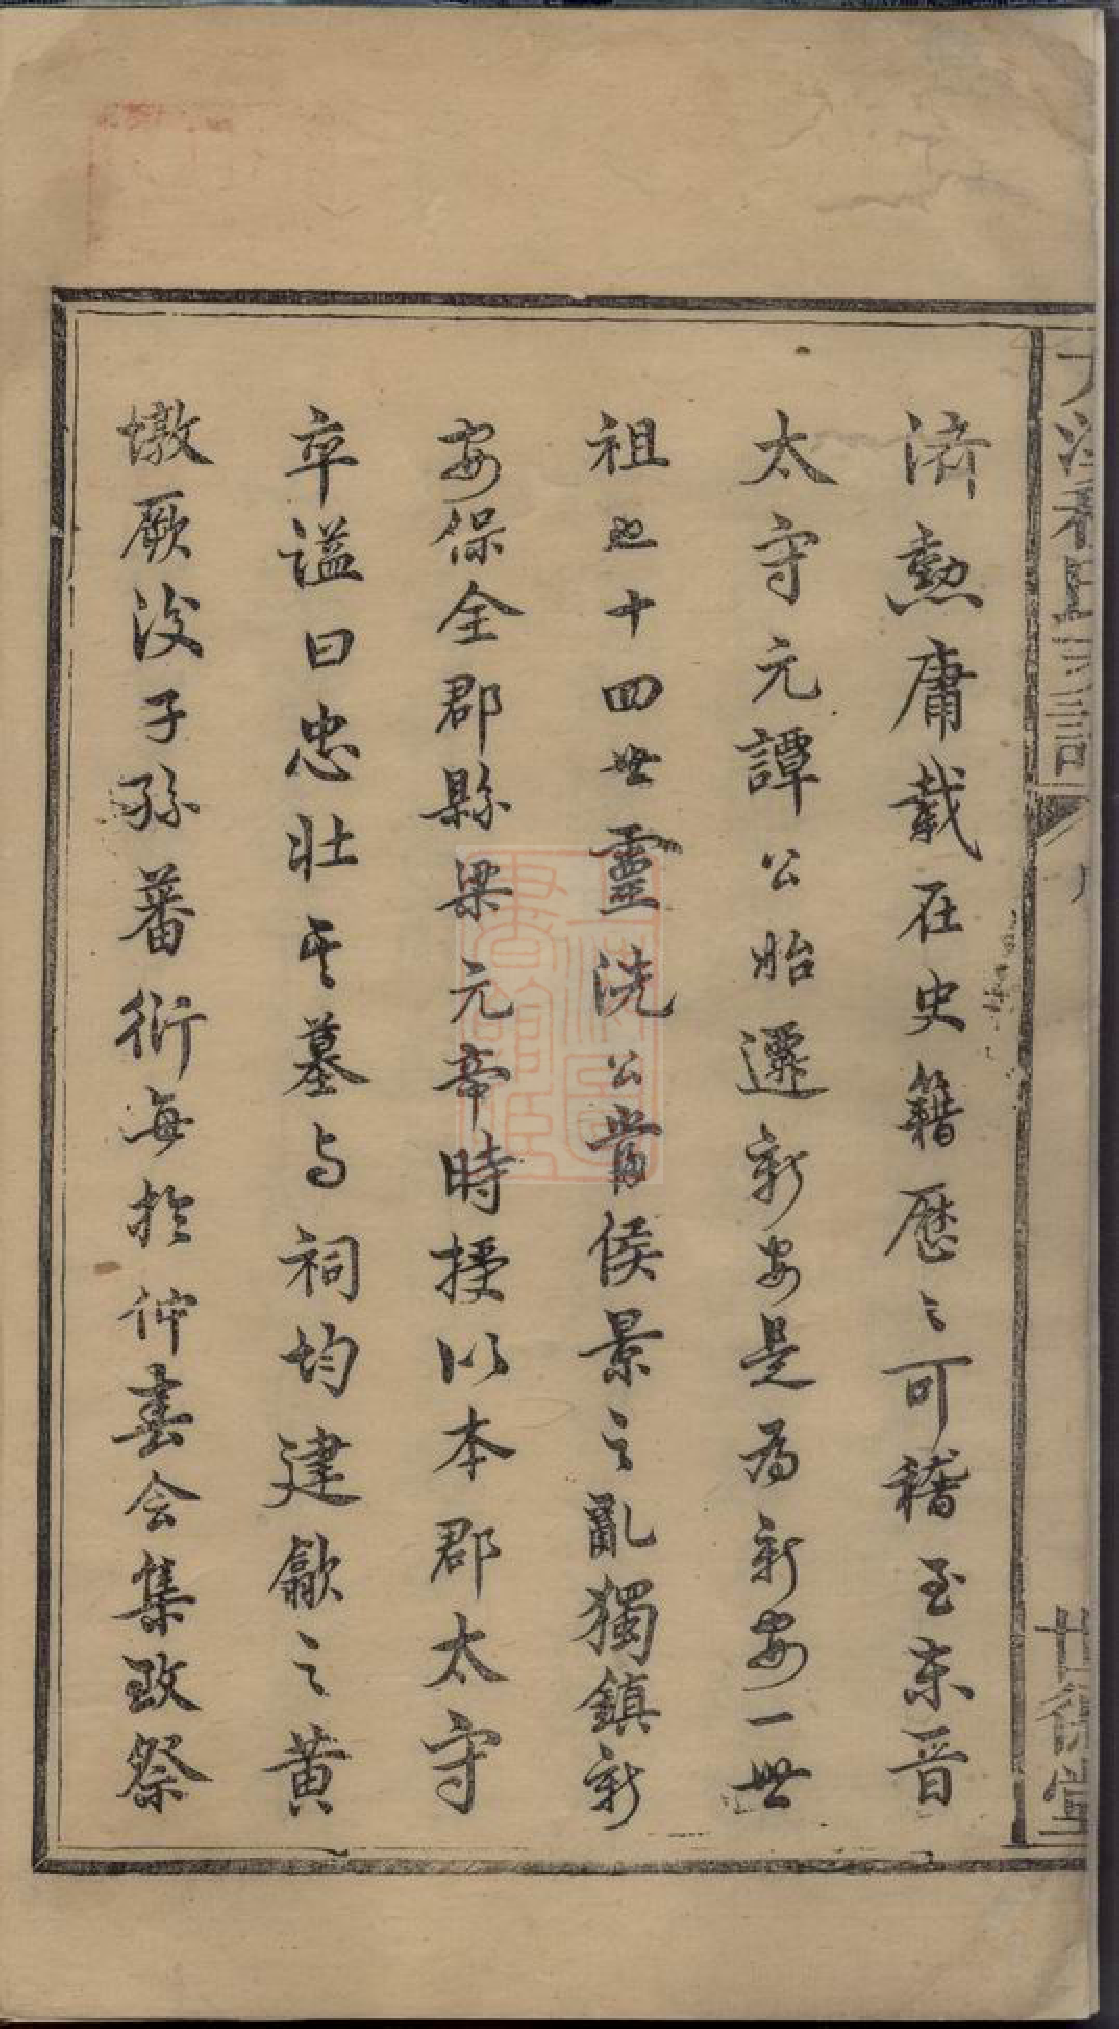 濟勲庸載在史籍歷〻可稽至东晋
太守元譚公始遷新安是為新安一世
祖也十四世靈洗公當侯景之亂獨鎮新
安保全郡縣梁元帝時授以本郡太守
卒谥曰忠壮其墓与祠均建歙之黄
墩厥後子孫蕃衍每於仲春会集致祭